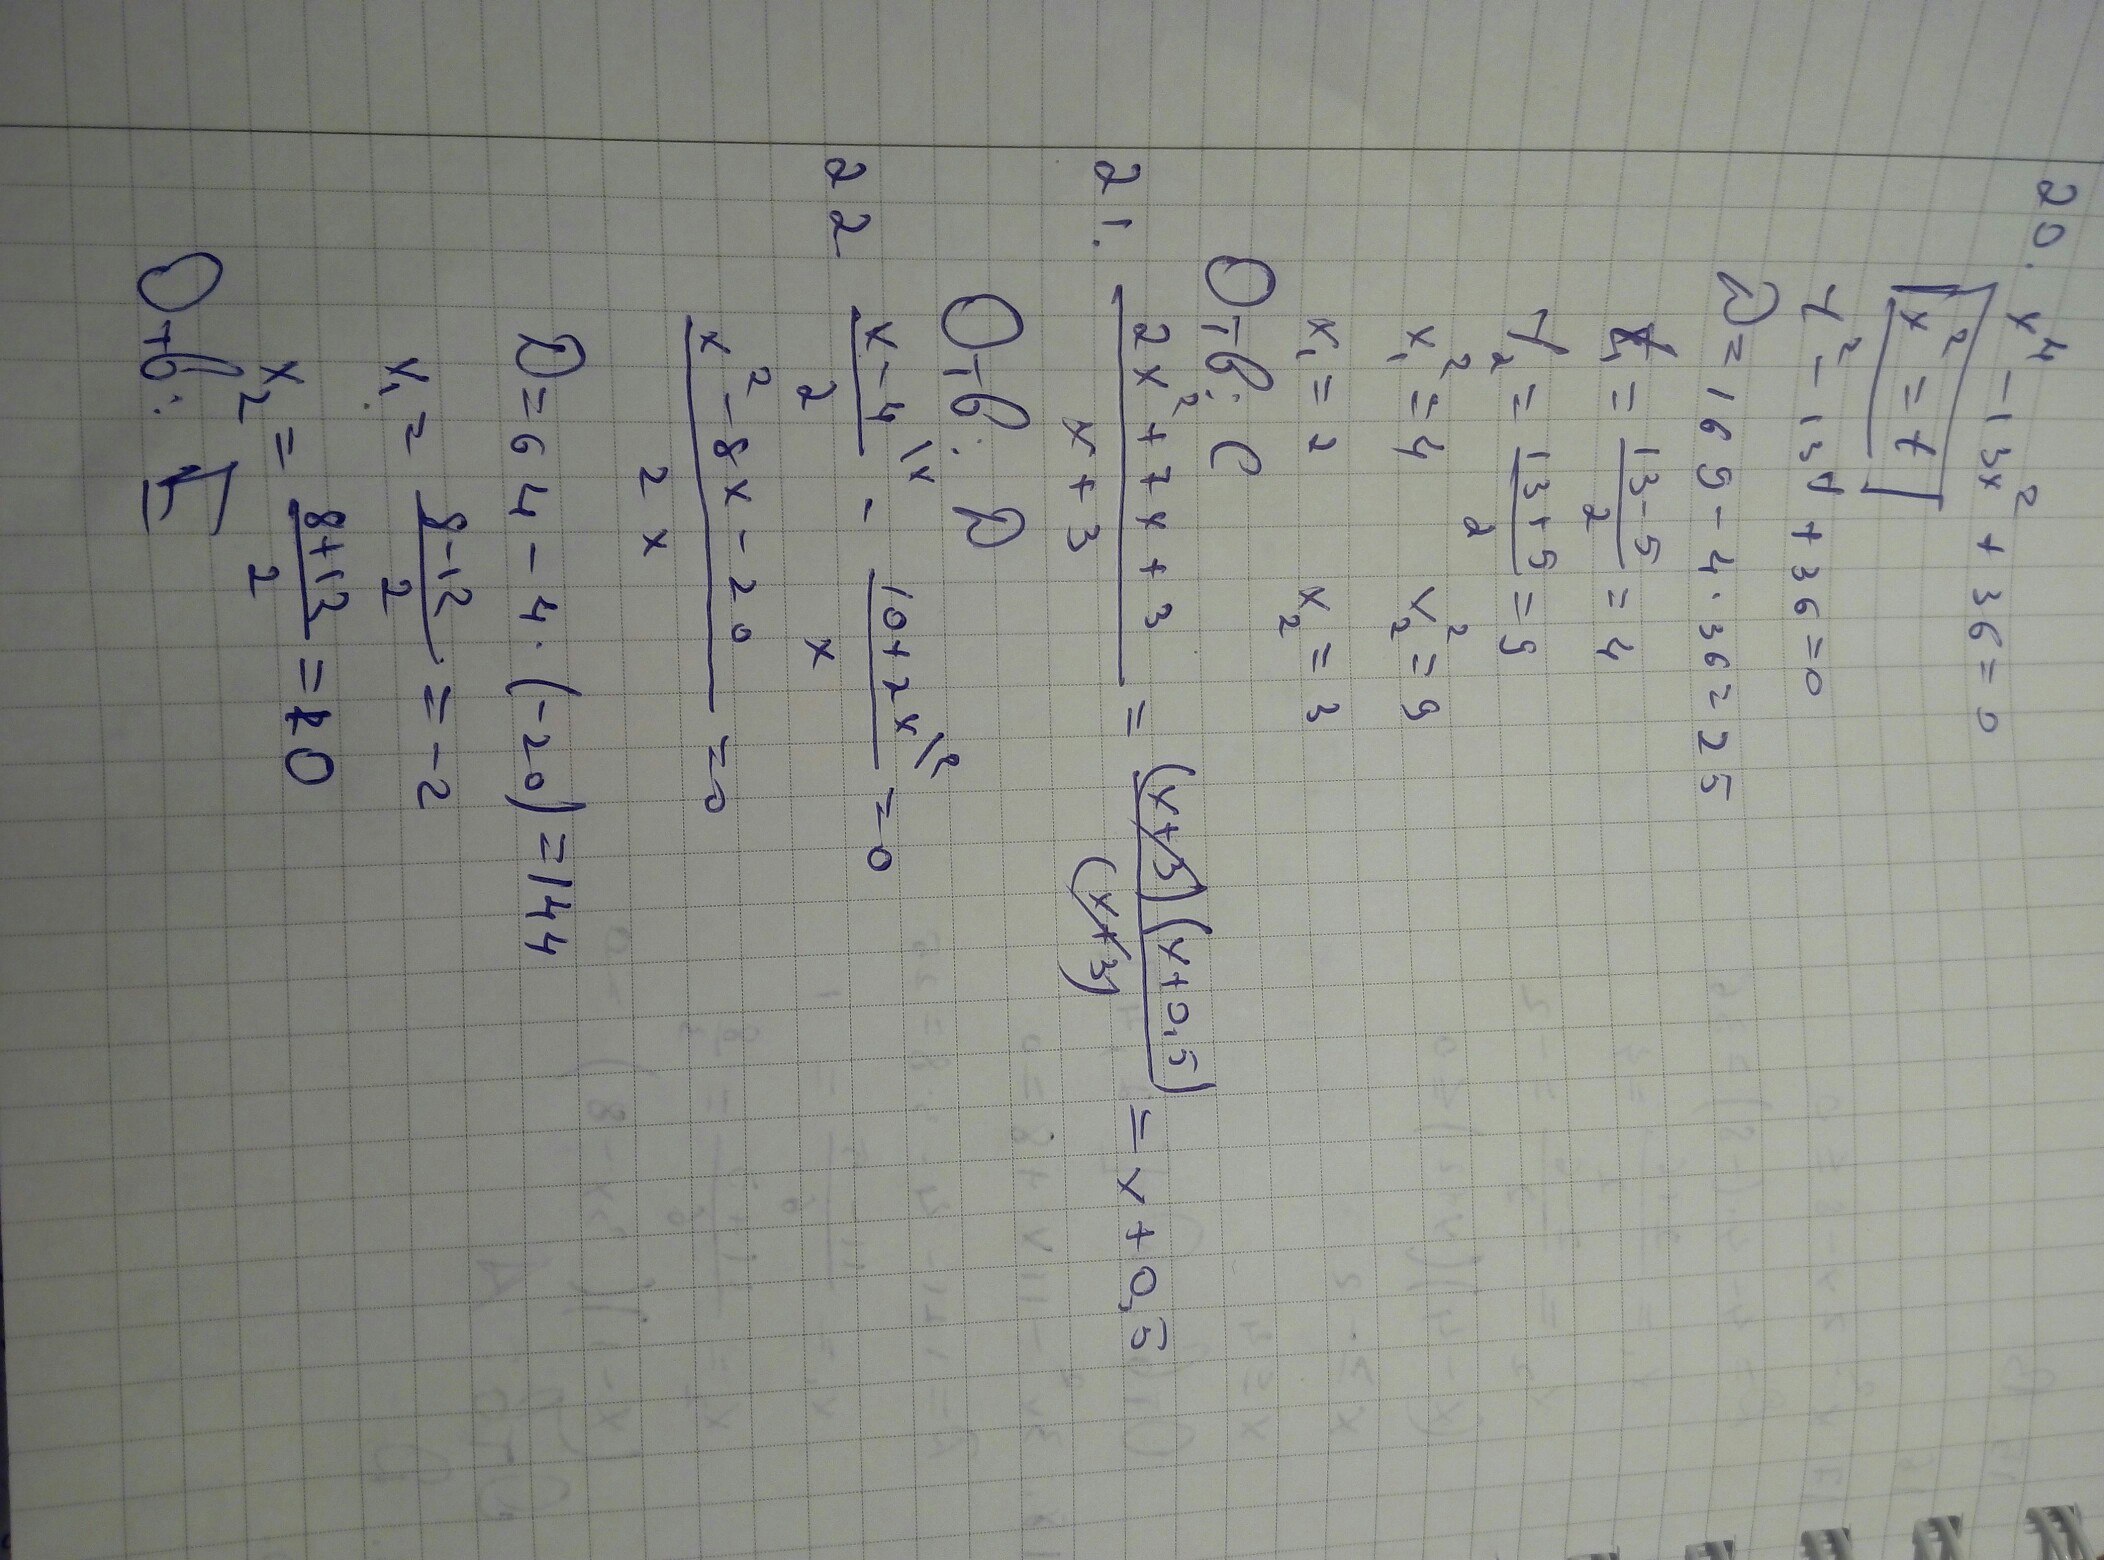 20. x⁴ - 13x² + 36 = 0
x² = t
t² - 13t + 36 = 0
D = 169 - 4·36 = 25
t₁ = (13-5)/2 = 4
t₂ = (13+5)/2 = 9
x₁² = 4 x₂² = 9
x₁ = 2 x₂ = 3
Отв: C
21. (2x² + 7x + 3)/(x + 3) = ((x+3)(x+0,5))/((x+3)) = x + 0,5
Отв: D
22 (x-4)/2 \x - (10+2x)/x \2 = 0
(x² - 8x - 20)/2x = 0
D = 64 - 4·(-20) = 144
x₁ = (8-12)/2 = -2
x₂ = (8+12)/2 = 10
Отв: E